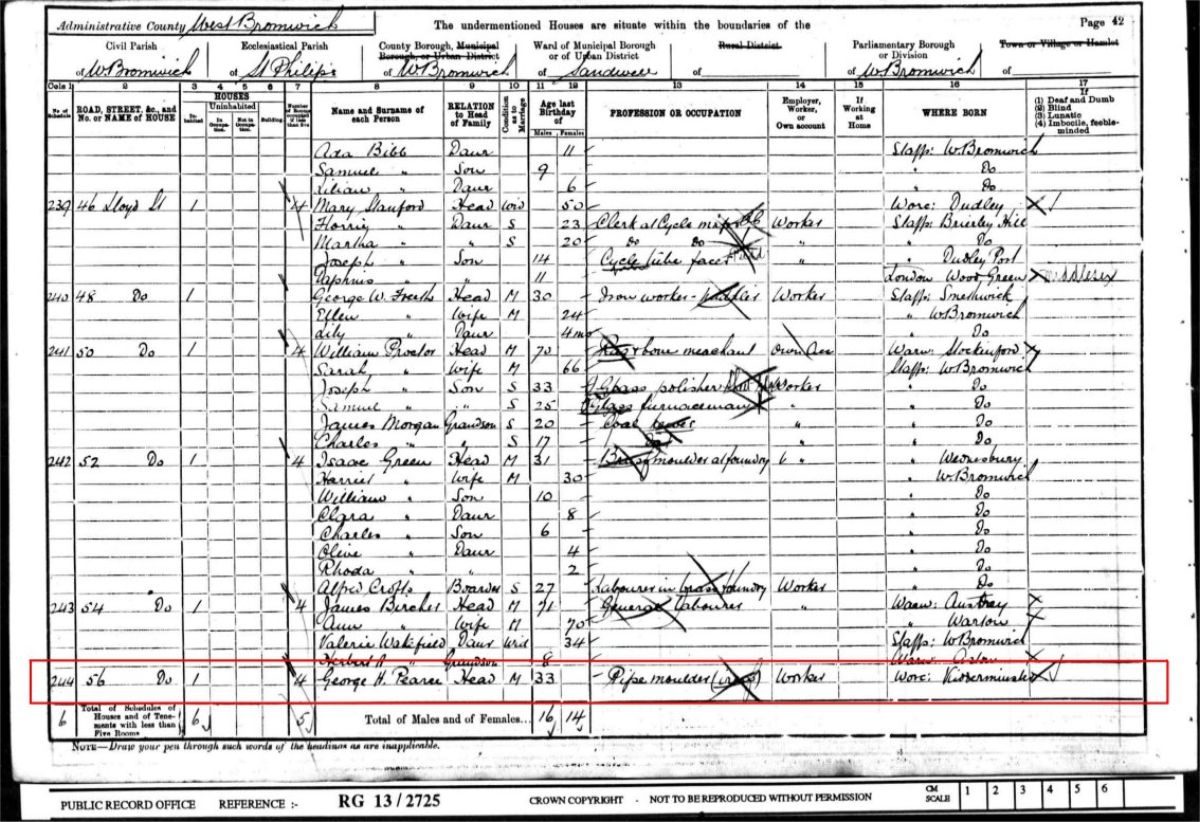 Administrative County West Bromwich The undermentioned Houses are situate within the boundaries of the Page 42
Civil Parish Ecclesiastical Parish County Borough, Municipal Borough, or Urban District Ward of Municipal Borough or of Urban District Rural District Parliamentary Borough or Division Town or Village or Hamlet
of W Bromwich of St Philips of W Bromwich of Sandwell of of W Bromwich of
Cols 1 2 3 4 5 6 7 8 9 10 11 12 13 14 15 16 17
No. of Schedule ROAD, STREET, &c., and No. or NAME of HOUSE HOUSES Inhabited Uninhabited In Occupation. Not in Occupation. Building Number of Rooms occupied if less than five Name and Surname of each Person RELATION to Head of Family Condition as to Marriage Age last Birthday of Males Females PROFESSION OR OCCUPATION Employer, Worker, or Own account If Working at Home WHERE BORN If (1) Deaf and Dumb (2) Blind (3) Lunatic (4) Imbecile, feeble-minded
Ada Bibb Daur 11 Staffs: W. Bromwich
Samuel " Son 9 " Do
Lilian " Daur 6 " Do
239 46 Lloyd St 1 4 Mary Stanford Head Wid 50 Worc: Dudley
Florrie " Daur S 23 Clerk at Cycle Worker Staffs: Brierley Hill
Martha " " S 20 Do Do " " Do
Joseph " Son 14 Cycle tube " " Dudley Port
" " 11 London Wood Green Middlesex
240 48 Do 1 George W. Freeth Head M 30 Iron worker - puddler Worker Staffs: Smethwick
Ellen " Wife M 24 " W. Bromwich
Lily " Daur 4 mo " Do
241 50 Do 1 4 William Proctor Head M 70 Rag & bone merchant Own Acc Warw: Stockingford
Sarah " Wife M 66 Staffs: W. Bromwich
Joseph " Son S 33 Glass polisher Worker " Do
Samuel " " S 25 Glass furnaceman " " Do
James Morgan Grandson S 20 Coal hewer " " Do
Charles " " S 17 " Do
242 52 Do 1 4 Isaac Green Head M 31 Brass moulder at foundry " " Wednesbury
Harriet " Wife M 30 " W. Bromwich
William " Son 10 " Do
Clara " Daur 8 " Do
Charles " Son 6 " Do
Olive " Daur 4 " Do
Rhoda " " 2 " Do
Alfred Crofts Boarder S 27 Labourer in brass foundry Worker " Do
243 54 Do 1 4 James Bircher Head M 71 General Labourer " Warw: Austrey
Ann " Wife M 70 " Warton
Valerie Wakefield Daur Wid 34 Staffs: W. Bromwich
Herbert A " Grandson 8 Warw: Aston
244 56 Do 1 4 George H. Pearce Head M 33 Pipe moulder (iron) Worker Worc: Kidderminster
6 Total of Schedules of Houses and of Tenements with less than Five Rooms 6 5 Total of Males and of Females... 16 14
NOTE—Draw your pen through such words of the headings as are inapplicable.
PUBLIC RECORD OFFICE REFERENCE :- RG 13 / 2725 CROWN COPYRIGHT - NOT TO BE REPRODUCED WITHOUT PERMISSION CM SCALE 1 2 3 4 5 6